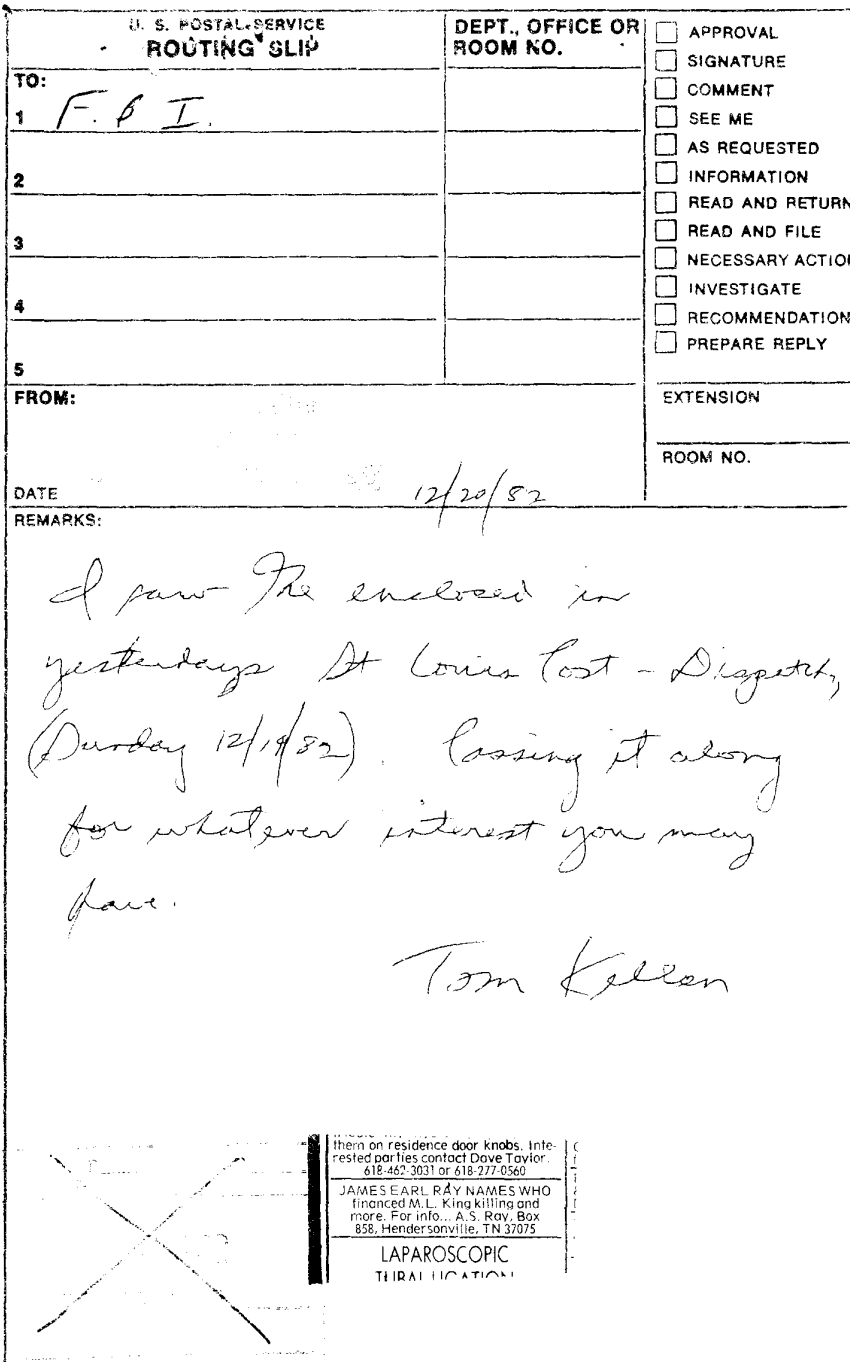 U. S. POSTAL SERVICE
ROUTING SLIP
DEPT., OFFICE OR
ROOM NO.
TO:
1 F. B I.
2
3
4
5
APPROVAL
SIGNATURE
COMMENT
SEE ME
AS REQUESTED
INFORMATION
READ AND RETURN
READ AND FILE
NECESSARY ACTION
INVESTIGATE
RECOMMENDATION
PREPARE REPLY
FROM:
EXTENSION
ROOM NO.
DATE 12/20/82
REMARKS:
I saw the enclosed in
yesterdays St Louis Post - Dispatch,
(Sunday 12/19/82). Passing it along
for whatever interest you may
have.
Tom
them on residence door knobs. Inte-
rested parties contact Dave Taylor.
618-462-3031 or 618-277-0560
JAMES EARL RAY NAMES WHO
financed M.L. King killing and
more. For info... A.S. Ray, Box
858, Hendersonville, TN 37075
LAPAROSCOPIC